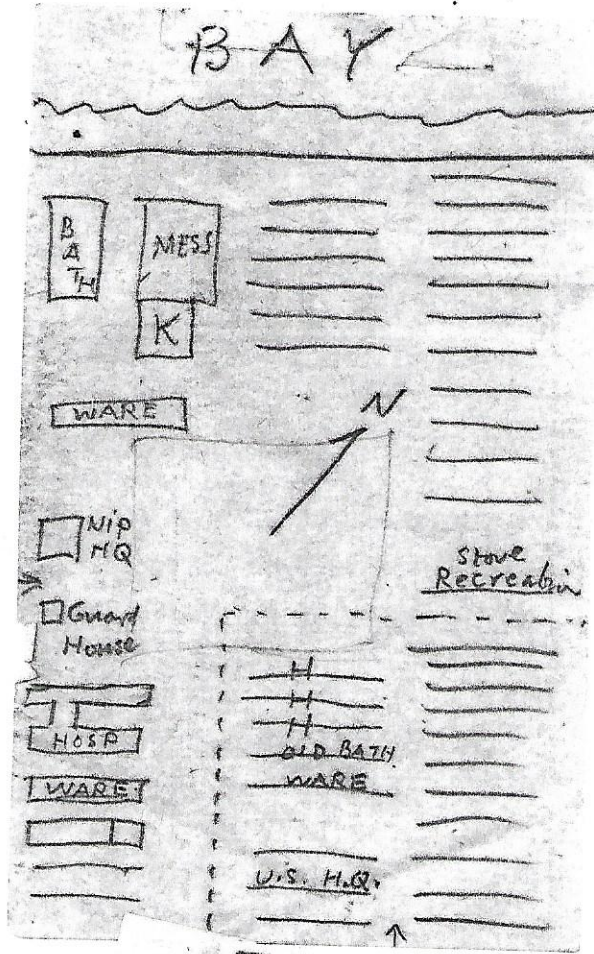 BAY
BATH
MESS
K
WARE
N
Nip
HQ
Stove
Recreation
Guard
House
H
H
H
HOSP
OLD BATH
WARE
WARE
U.S. H.Q.